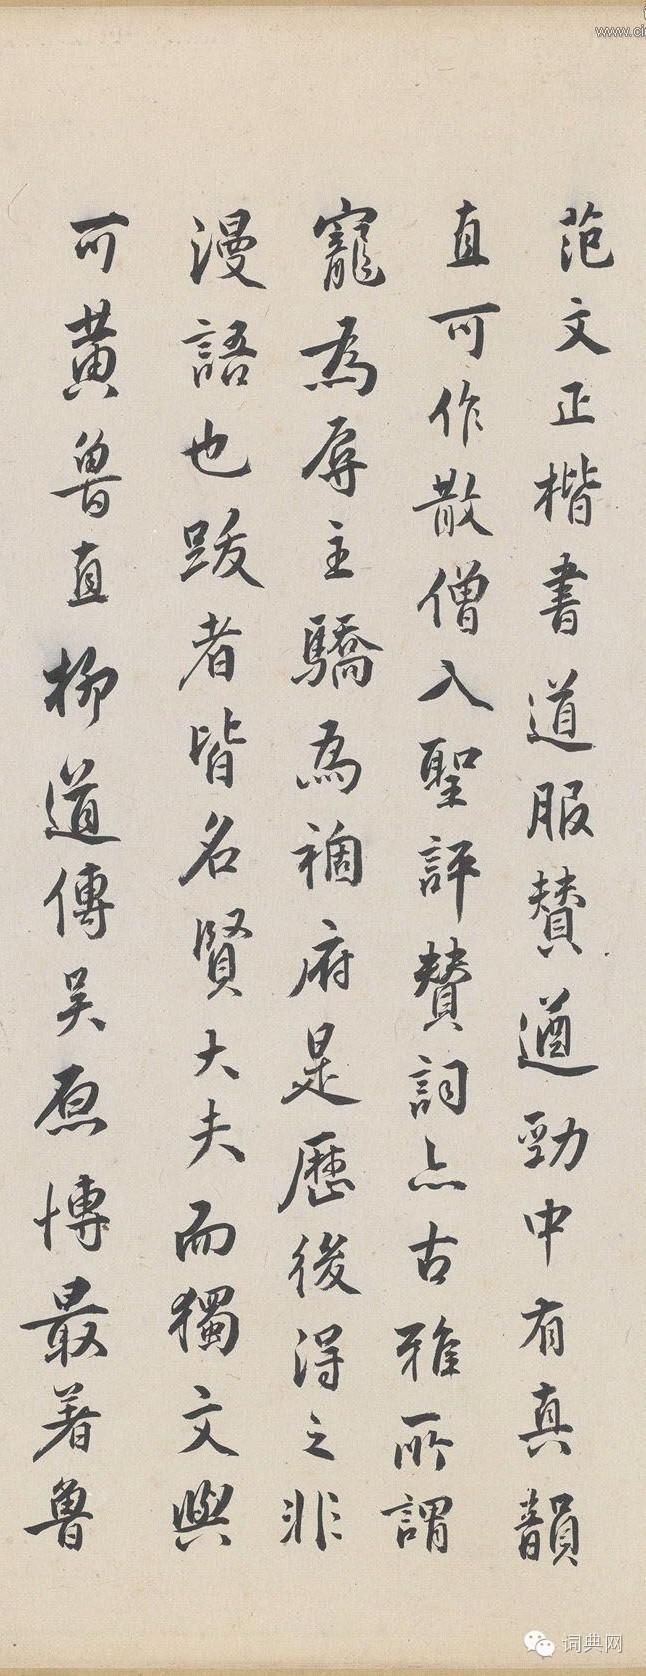 范文正楷書道服贊遒勁中有真韻
直可作散僧入聖評贊詞亦古雅所謂
寵為辱主驕為禍府是歷後得之非
漫語也跋者皆名賢大夫而獨文與
可黃魯直柳道傳吳原博最著魯
www.ci
词典网